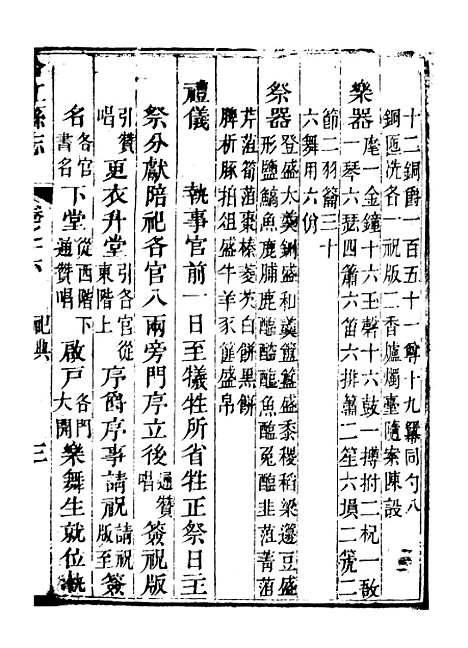 十二銅爵一百五十一尊十九冪同勺八
銅匜洗各一祝版二香爐燭臺隨案陳設
樂器麾一金鐘十六玉磬十六鼓一搏拊二柷一敔
一琴六瑟四簫六笛六排簫二笙六塤二箎二
節二羽籥三十
六舞用六佾
祭器登盛太羹鉶盛和羹簠簋盛黍稷稻粱籩豆盛
形鹽鱐魚鹿脯鹿醢醓醢魚醢兎醢韭菹菁菹
芹菹筍菹棗榛菱芡白餅黑餅
脾析豚拍俎盛牛羊豕篚盛帛
禮儀 執事官前一日至犧牲所省牲正祭日主
祭分獻陪祀各官入兩旁門序立後通贊唱簽祝版
引贊唱更衣升堂引各官從東階上序爵序事請祝請祝版至簽
名各官書名下堂從西階下通贊唱啟戶各門大開樂舞生就位執
江縣志
卷十六 祀典 三